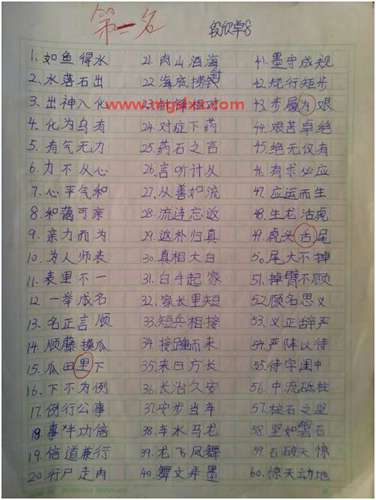 第一名
段欣学
1. 如鱼得水
2. 水落石出
3. 出神入化
4. 化为乌有
5. 有气无力
6. 力不从心
7. 心平气和
8. 和蔼可亲
9. 亲力而为
10. 为人师表
11. 表里不一
12. 一举成名
13. 名正言顺
14. 顺藤摸瓜
15. 瓜田里下
16. 下不为例
17. 例行公事
18. 事半功倍
19. 倍道兼行
20. 行尸走肉
21. 肉山酒海
22. 海底捞针
23. 针锋相对
24. 对症下药
25. 药石之言
26. 言听计从
27. 从善如流
28. 流连忘返
29. 返朴归真
30. 真相大白
31. 白手起家
32. 家长里短
33. 短兵相接
34. 接踵而来
35. 来日方长
36. 长治久安
37. 安步当车
38. 车水马龙
39. 龙飞凤舞
40. 舞文弄墨
41. 墨守成规
42. 规行矩步
43. 步履为艰
44. 艰苦卓绝
45. 绝无仅有
46. 有求必应
47. 应运而生
48. 生龙活虎
49. 虎头舌尾
50. 尾大不掉
51. 掉臂不顾
52. 顾名思义
53. 义正辞严
54. 严阵以待
55. 待字闺中
56. 中流砥柱
57. 柱石之坚
58. 坚如磐石
59. 石破天惊
60. 惊天动地